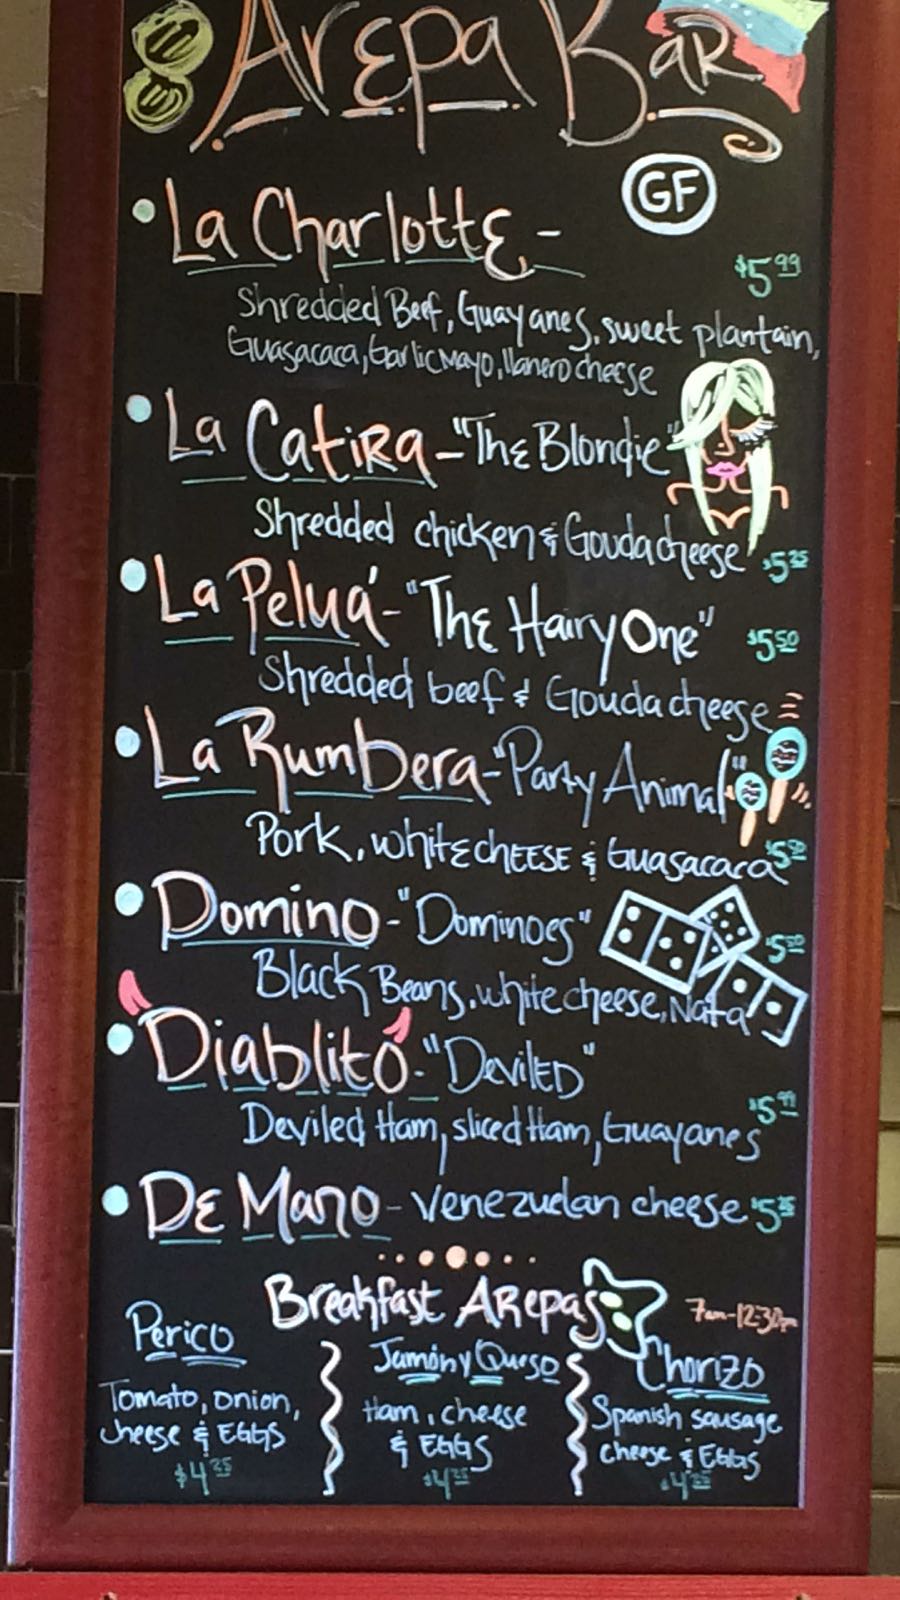 Arepa Bar
GF
La Charlotte -
$5.99
Shredded Beef, Guayanes, sweet plantain,
Guasacaca, Garlic Mayo, llanero cheese
La Catira - "The Blondie"
Shredded chicken & Gouda cheese $5.25
La Peluá - "The Hairy One" $5.50
Shredded beef & Gouda cheese
La Rumbera - "Party Animal"
Pork, white cheese & Guasacaca $5.50
Domino - "Dominoes" $5.50
Black Beans, white cheese, Nata
Diablitó - "Deviled"
$5.99
Deviled Ham, sliced Ham, Guayanes
De Mano - Venezuelan cheese $5.25
Breakfast Arepas 7am-12:30pm
Perico
Tomato, onion,
cheese & EGGS
$4.25
Jamón y Queso
Ham, cheese
& EGGS
$4.25
Chorizo
Spanish sausage
cheese & EGGS
$4.25